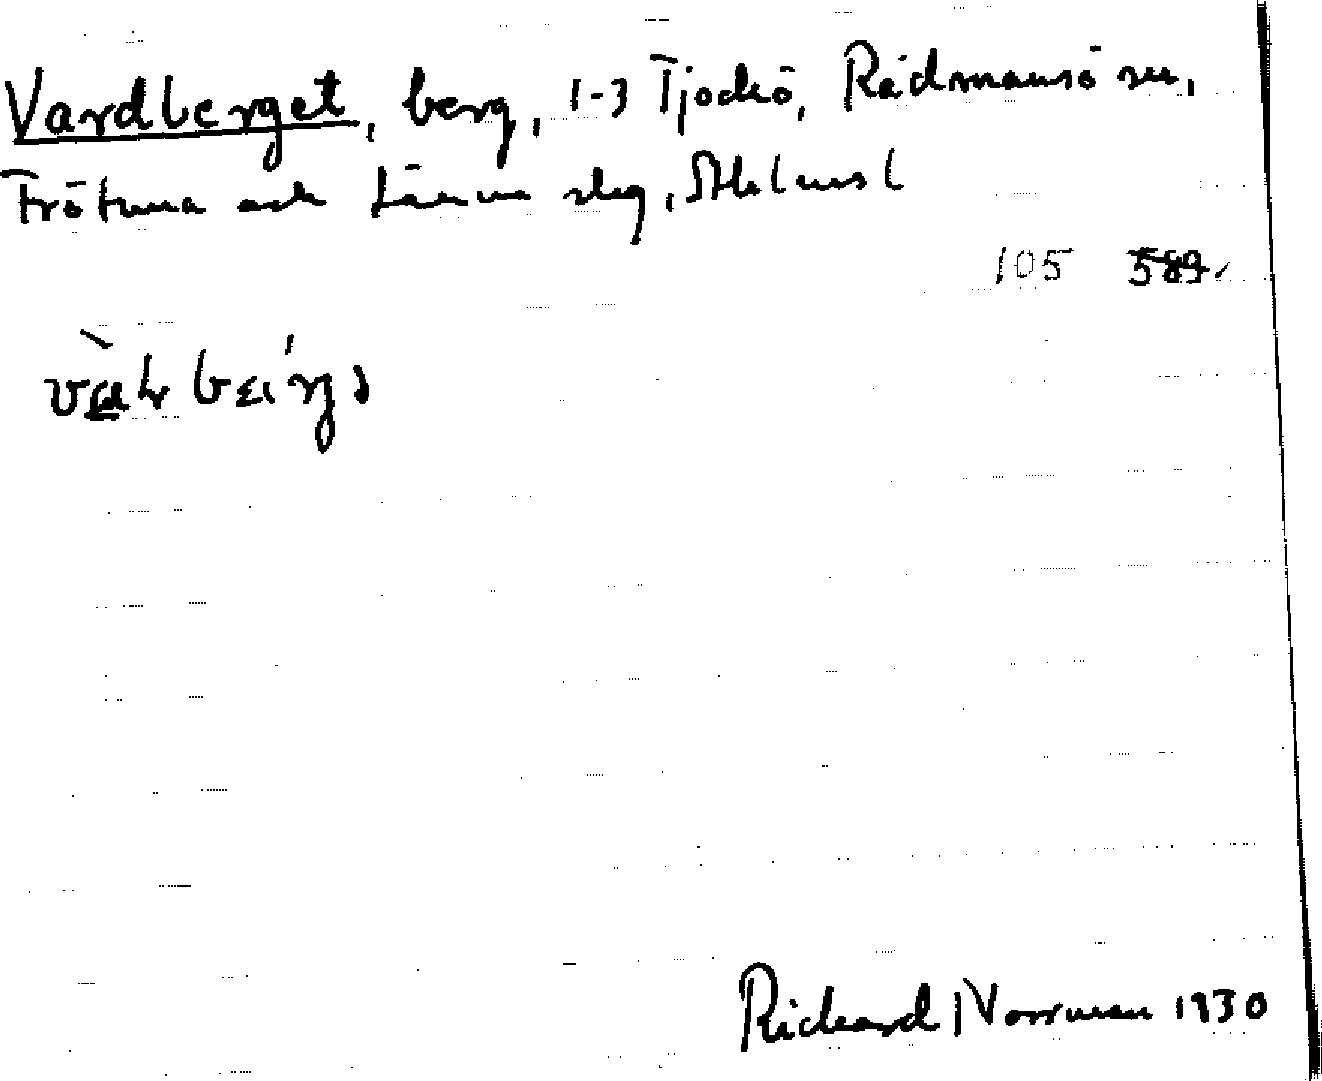 Vardberget, berg, 1-3 Tjockö, Rådmansö sn,
Frötuna och Länna slg, Sthlms l
105 589.
Rickard Norrman 1930